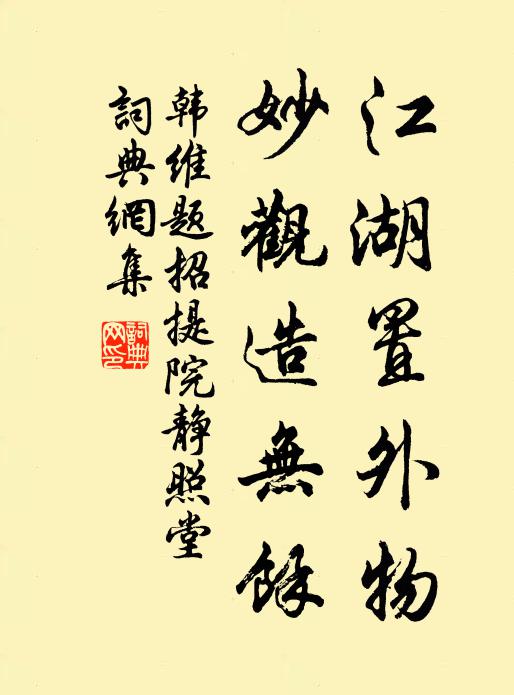 江湖置外物
妙觀造無餘
韩維题招提院静照堂
詞典網集
詞典網印